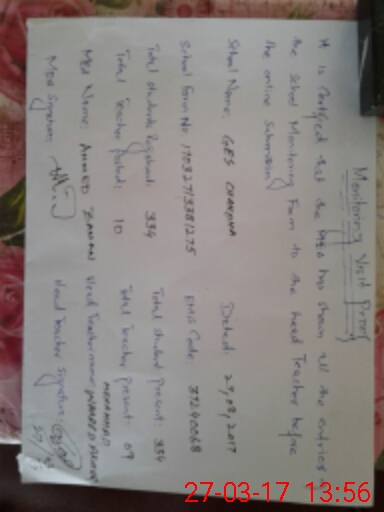 Monitoring Visit Proof
It is certified that the MEA has shown all the entries
the School Monitoring Form to the Head Teacher before
the online submission
School Name: GPS Dated: 27,03,2017
School Form No: EMIS Code:
Total students Registered: 334 Total student present: 334
Total Teacher Posted: 10 Total Teacher present: 09
MEA Name: AHMED ZAMAN Head Teacher name: MUHAMMAD
MEA Signature: Head teacher Signature:
27-03-17 13:56